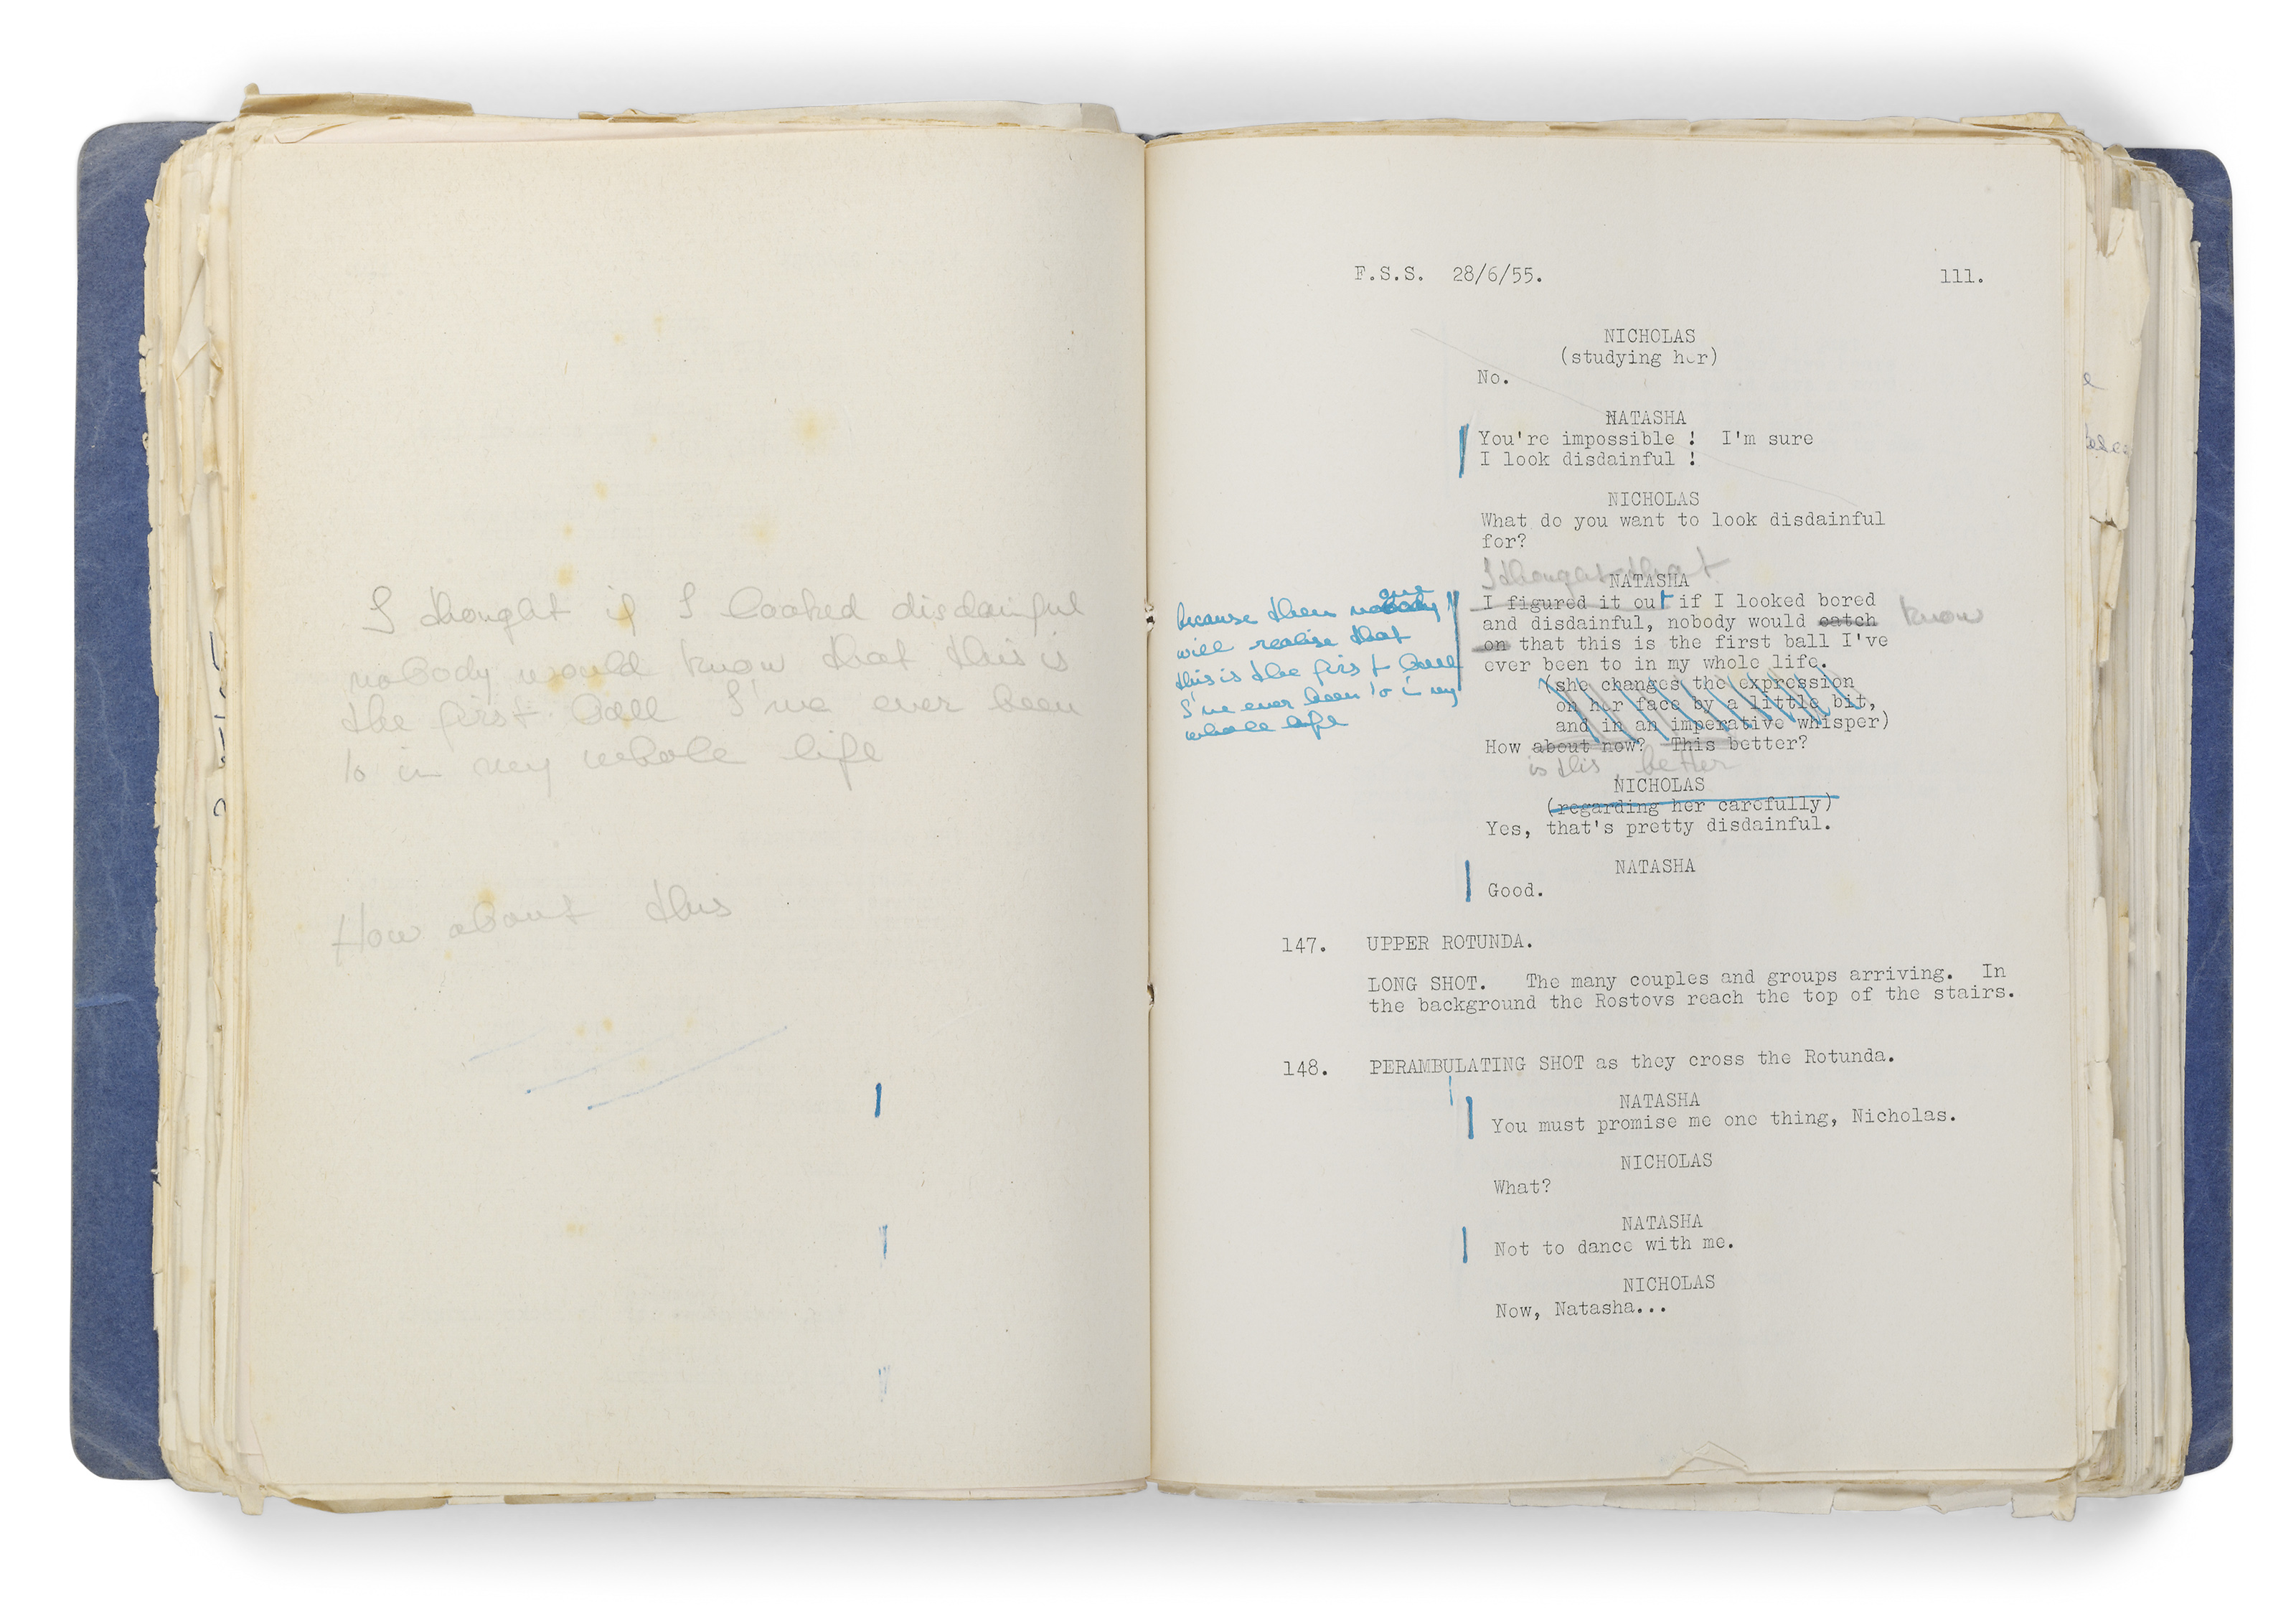 I thought if I looked disdainful
nobody would know that this is
the first ball I've ever been
to in my whole life
How about this
F.S.S. 28/6/55.
111.
NICHOLAS
(studying her)
No.
NATASHA
You're impossible ! I'm sure
I look disdainful !
NICHOLAS
What do you want to look disdainful
for?
I thought that
NATASHA
I figured it out if I looked bored
and disdainful, nobody would catch know
on that this is the first ball I've
ever been to in my whole life.
(she changes the expression
on her face by a little bit,
and in an imperative whisper)
How about now? This better?
is this better
one
because then nobody
will realise that
this is the first ball
I've ever been to in my
whole life
NICHOLAS
(regarding her carefully)
Yes, that's pretty disdainful.
NATASHA
Good.
147. UPPER ROTUNDA.
LONG SHOT. The many couples and groups arriving. In
the background the Rostovs reach the top of the stairs.
148. PERAMBULATING SHOT as they cross the Rotunda.
NATASHA
You must promise me one thing, Nicholas.
NICHOLAS
What?
NATASHA
Not to dance with me.
NICHOLAS
Now, Natasha...